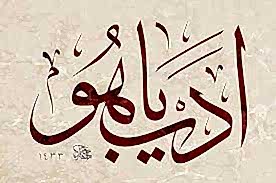 ادب يا هو
١٤٣٣